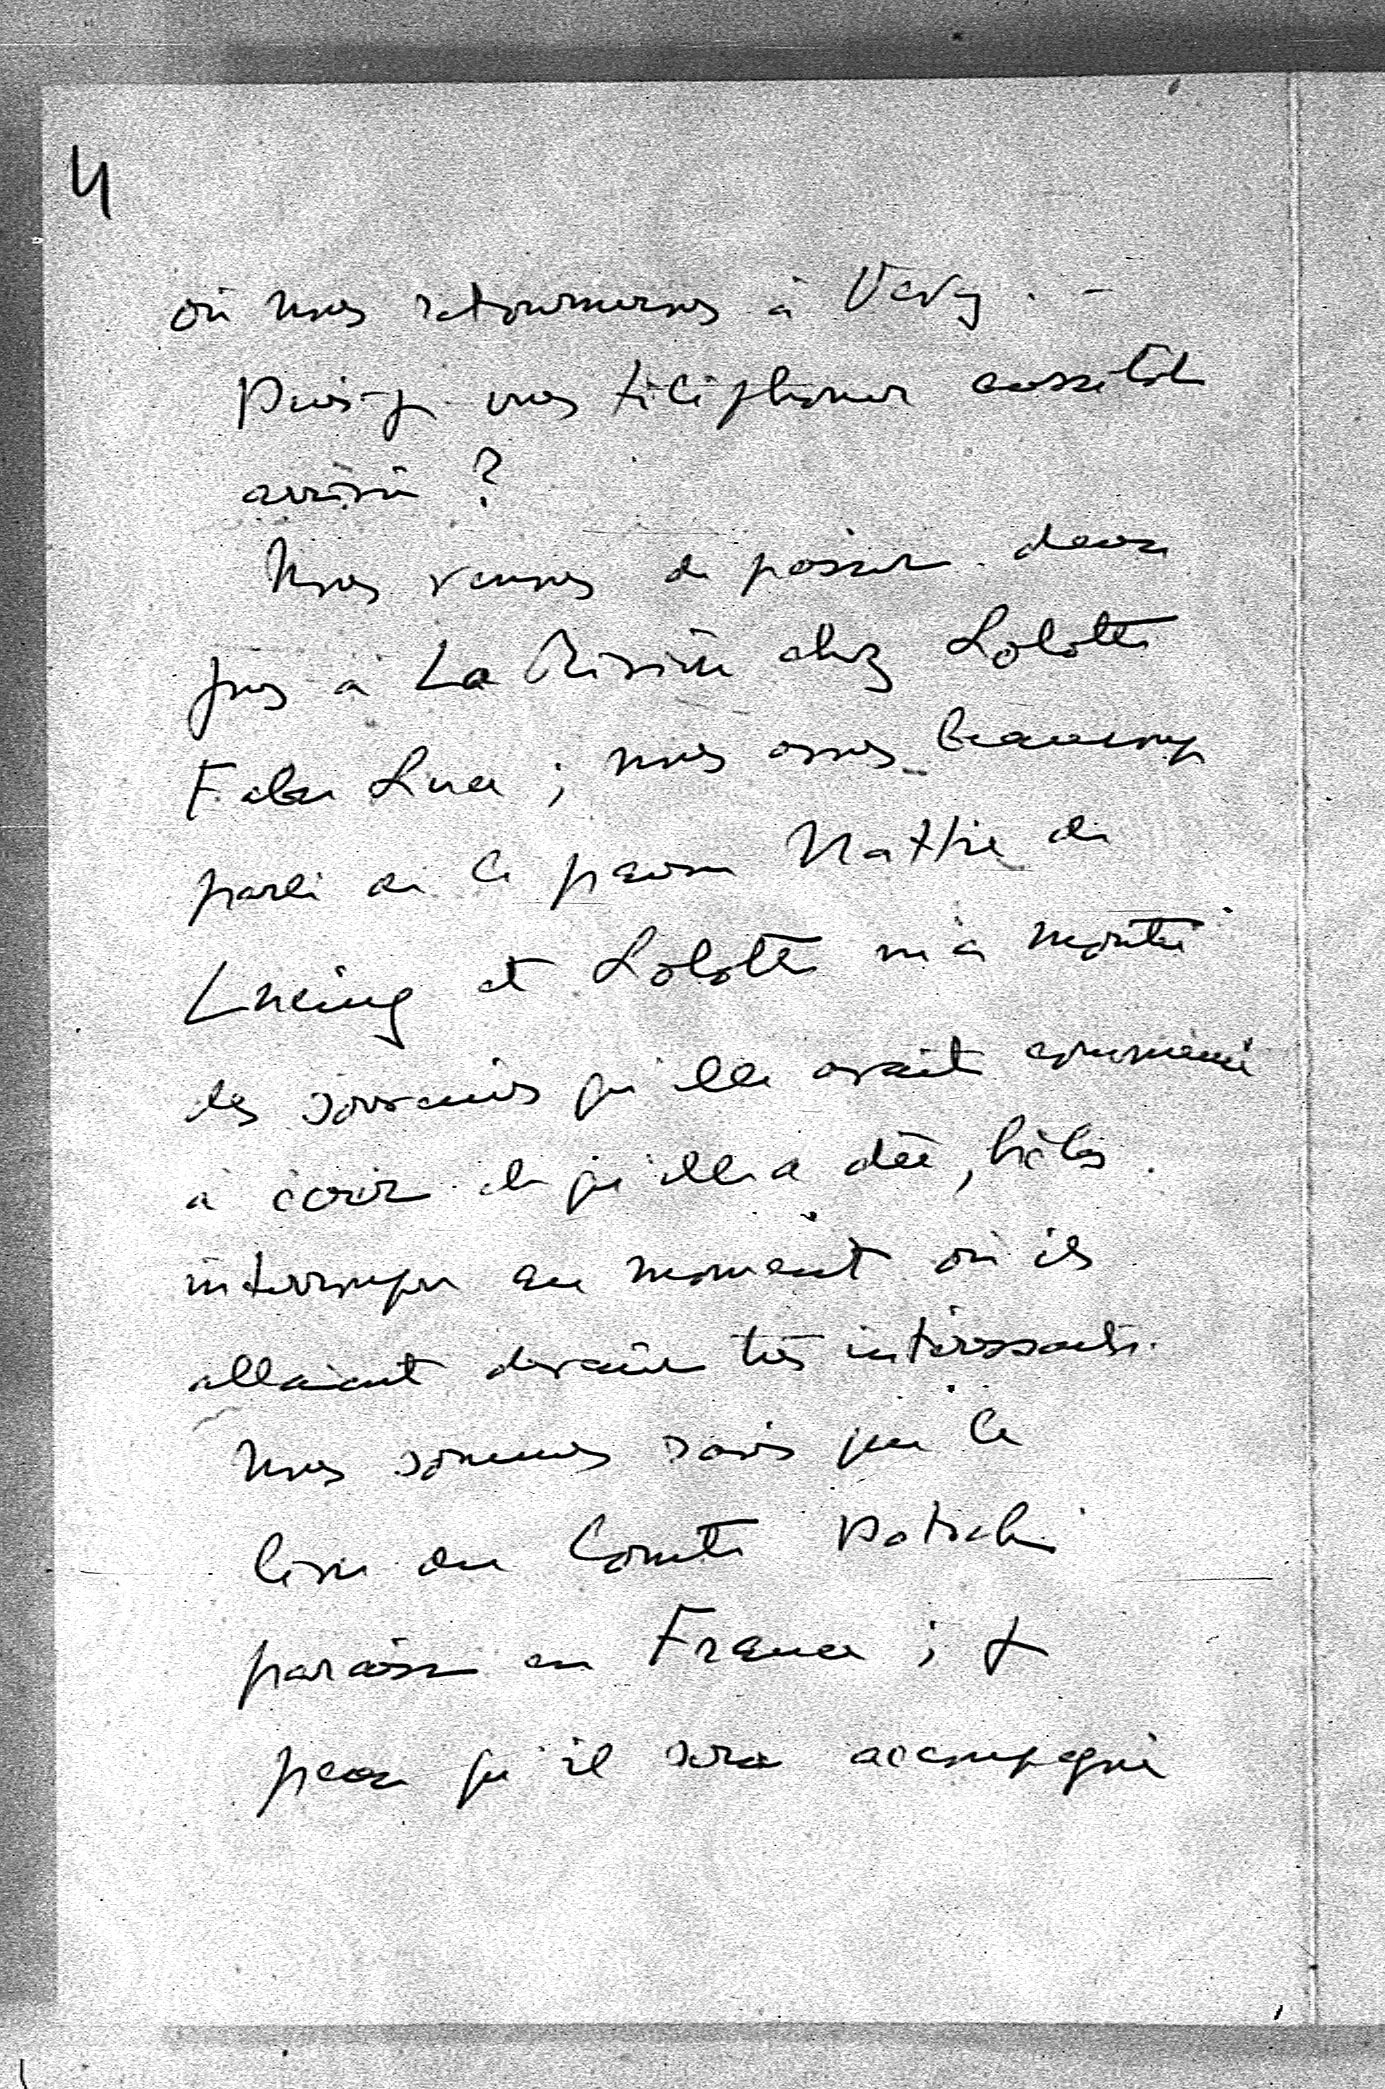 4
où nous retournerons à Vevey. -
Puis-je vous téléphoner aussitôt
arrivé ?
Nous venons de passer deux
jours à La Rivière chez Lolotte
Fabre Luce ; nous avons beaucoup
parlé de ce pauvre Matthieu de
Lucinge et Lolotte m'a montré
des souvenirs qu'elle avait commencé
à écrire et qu'elle a dû, hélas.
interrompre au moment où ils
allaient devenir très intéressants.
Nous sommes ravis que le
livre du Comte
paraisse en France ; je
pense qu'il sera accompagné